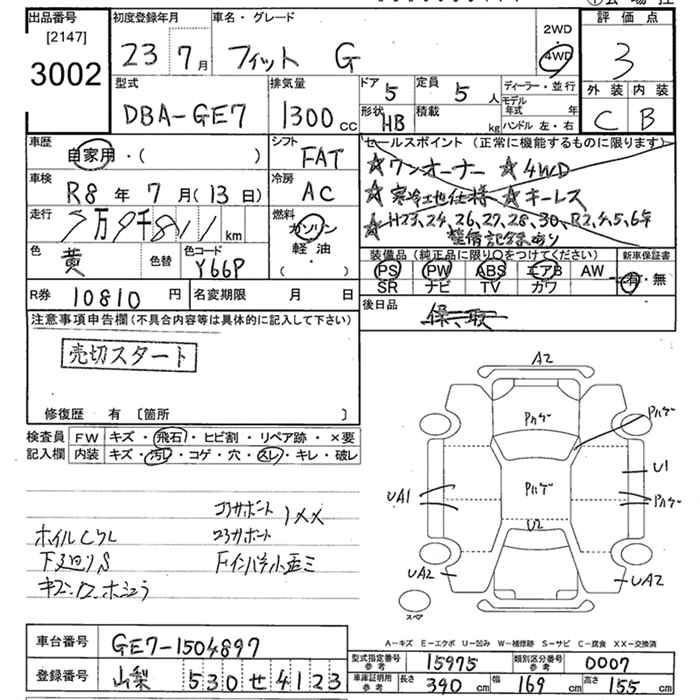 出品番号
[2147]
3002
初度登録年月
23年 7月
車名・グレード
フィット G
2WD
4WD
評価点
3
外装 内装
C B
型式
DBA-GE7
排気量
1300cc
ドア 5
形状 HB
定員 5人
積載 kg
ディーラー・並行
モデル年式 年
ハンドル 左・右
車歴
自家用・( )
シフト
FAT
セールスポイント (正常に機能するものに限ります)
★ワンオーナー ★4WD
★寒冷地仕様 ★キーレス
★H23,24,26,27,28,30,R2,4,5,6年
整備記録あり
車検
R8年 7月(13日)
冷房
AC
走行
7万9千811km
燃料
ガソリン
軽油・
( )
色
黄
色替
色コード
Y66P
装備品 (純正品に限り○をつけてください)
PS PW ABS エアB AW
SR ナビ TV カワ
新車保証書
有・無
R券 10810円
名変期限 月 日
後日品
保、取
注意事項申告欄(不具合内容等は具体的に記入して下さい)
売切スタート
修復歴 有 [箇所 ]
検査員記入欄
FW キズ・飛石・ヒビ割・リペア跡・×要
内装 キズ・汚レ・コゲ・穴・スレ・キレ・破レ
コアサポート 1XX
ホイルCクレ
下廻りS
A2
Pハゲ
Pハゲ
Pハゲ
U1
UA1
Pハゲ
U2
UA2
UA2
スペア
A-キズ E-エクボ U-凹み W-補修跡 S-サビ C-腐食 XX-交換済
車台番号
GE7-1504897
登録番号
山梨 530 せ 4123
型式指定番号 参考 15975
類別区分番号 参考 0007
車庫証明用 参考 長さ 390cm 幅 169cm 高さ 155cm